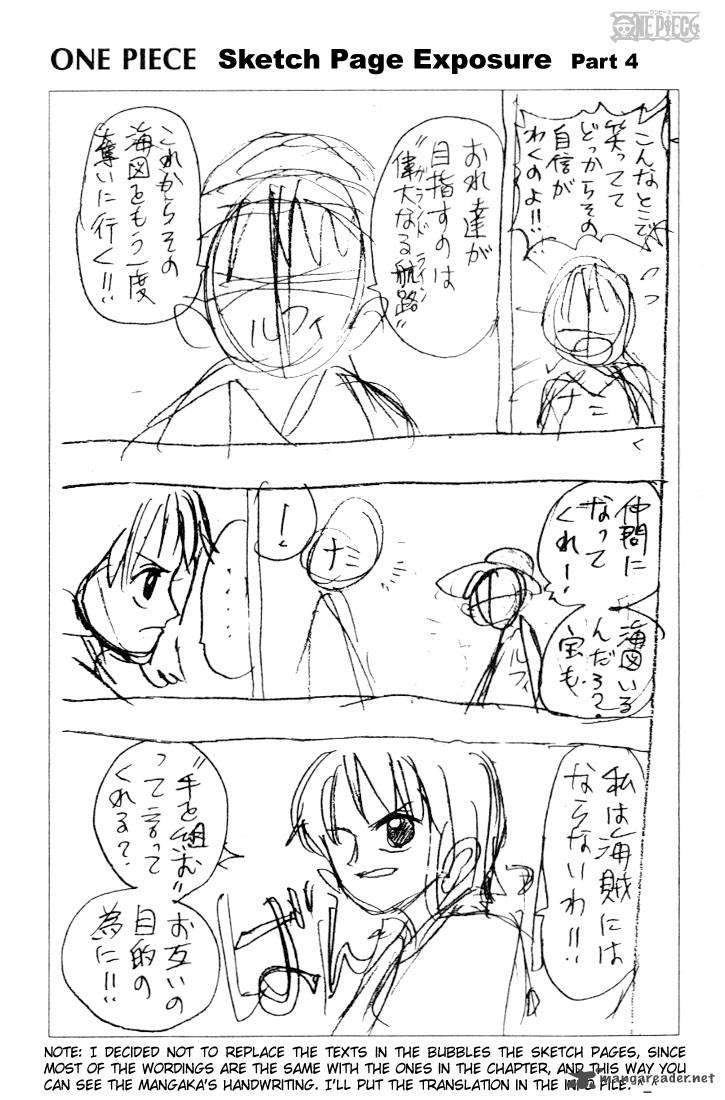 ワンピース
ONE PIECE
ONE PIECE Sketch Page Exposure Part 4
こんなとこで
笑ってて
どっからその
自信が
わくのよ!!
ナミ
おれ達が
目指すのは
“偉大なる航路”
グランドライン
これからその
海図をもう一度
奪いに行く!!
ルフィ
仲間に
なって
くれ!
海図いる
んだろ?
宝も
ルフィ
ナミ
!
……
私は海賊には
ならないわ!!
“手を組む”
って言って
くれる?
お互いの
目的の
為に!!
ばん
NOTE: I DECIDED NOT TO REPLACE THE TEXTS IN THE BUBBLES THE SKETCH PAGES, SINCE
MOST OF THE WORDINGS ARE THE SAME WITH THE ONES IN THE CHAPTER, AND THIS WAY YOU
CAN SEE THE MANGAKA'S HANDWRITING. I'LL PUT THE TRANSLATION IN THE INFO FILE. ^_^
mangareader.net